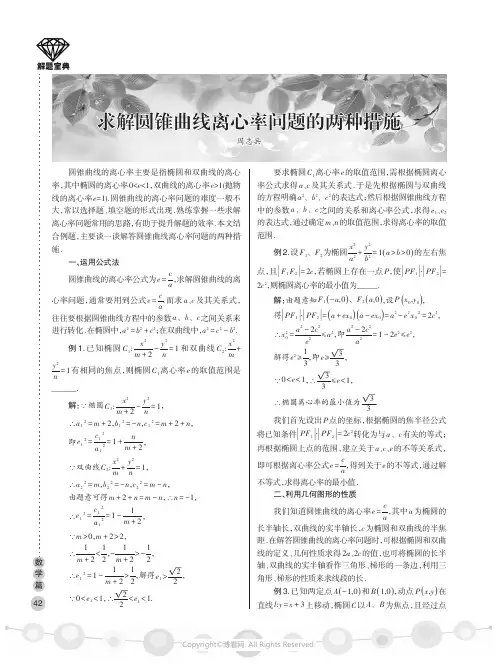 解题宝典
求解圆锥曲线离心率问题的两种措施
周志兵
圆锥曲线的离心率主要是指椭圆和双曲线的离心
率,其中椭圆的离心率0<e<1,双曲线的离心率e>1(抛物
线的离心率e=1).圆锥曲线的离心率问题的难度一般不
大,常以选择题、填空题的形式出现.熟练掌握一些求解
离心率问题常用的思路,有助于提升解题的效率.本文结
合例题,主要谈一谈解答圆锥曲线离心率问题的两种措
施.
一、运用公式法
圆锥曲线的离心率公式为e=c/a,求解圆锥曲线的离
心率问题,通常要用到公式e=c/a.而求a、c及其关系式,
往往要根据圆锥曲线方程中的参数a、b、c之间关系来
进行转化.在椭圆中,a²=b²+c²;在双曲线中,a²=c²-b².
例1.已知椭圆C₁:x²/(m+2)-y²/n=1和双曲线C₂:x²/m+
y²/n=1有相同的焦点,则椭圆C₁离心率e的取值范围是
_____.
解:∵椭圆C₁:x²/(m+2)-y²/n=1,
∴a₁²=m+2,b₁²=-n,c₁²=m+2+n,
即e₁²=c₁²/a₁²=1+n/(m+2),
∵双曲线C₂:x²/m+y²/n=1,
∴a₂²=m,b₂²=-n,c₂²=m-n,
由题意可得m+2+n=m-n,∴n=-1,
∴e₁²=c₁²/a₁²=1-1/(m+2),
∵m>0,m+2>2,
∴1/(m+2)<1/2,-1/(m+2)>-1/2,
∴e₁²=1-1/(m+2)>1/2,解得e₁>√2/2,
∵0<e₁<1,∴√2/2<e₁<1.
要求椭圆C₁离心率e的取值范围,需根据椭圆离心
率公式求得a、c及其关系式.于是先根据椭圆与双曲线
的方程明确a²、b²、c²的表达式;然后根据圆锥曲线方程
中的参数a、b、c之间的关系和离心率公式,求得e₁、e₂
的表达式,通过确定m、n的取值范围,求得离心率的取值
范围.
例2.设F₁、F₂为椭圆x²/a²+y²/b²=1(a>b>0)的左右焦
点,且|F₁F₂|=2c,若椭圆上存在一点P,使|PF₁|·|PF₂|=
2c²,则椭圆离心率的最小值为_____.
解:由题意知F₁(-a,0)、F₂(a,0),设P(x₀,y₀),
得|PF₁|·|PF₂|=(a+ex₀)(a-ex₀)=a²-e²x₀²=2c²,
∴x₀²=(a²-2c²)/e²≤a²,即(a²-2c²)/a²=1-2e²≤e²,
解得e²≥1/3,即e≥√3/3,
∵0<e<1,∴√3/3≤e<1,
∴椭圆离心率的最小值为√3/3
我们首先设出P点的坐标,根据椭圆的焦半径公式
将已知条件|PF₁|·|PF₂|=2c²转化为与a、c有关的等式;
再根据椭圆上点的范围,建立关于a、c、e的不等关系式,
即可根据离心率公式e=c/a,得到关于e的不等式,通过解
不等式,求得离心率的最小值.
二、利用几何图形的性质
我们知道圆锥曲线的离心率e=c/a,其中a为椭圆的
长半轴长,双曲线的实半轴长,c为椭圆和双曲线的半焦
距.在解答圆锥曲线的离心率问题时,可根据椭圆和双曲
线的定义、几何性质求得2a、2c的值,也可将椭圆的长半
轴、双曲线的实半轴看作三角形、梯形的一条边,利用三
角形、梯形的性质来求线段的长.
例3.已知两定点A(-1,0)和B(1,0),动点P(x,y)在
直线l:y=x+3上移动,椭圆C以A、B为焦点,且经过点
数学篇
42
Copyright©博看网. All Rights Reserved.